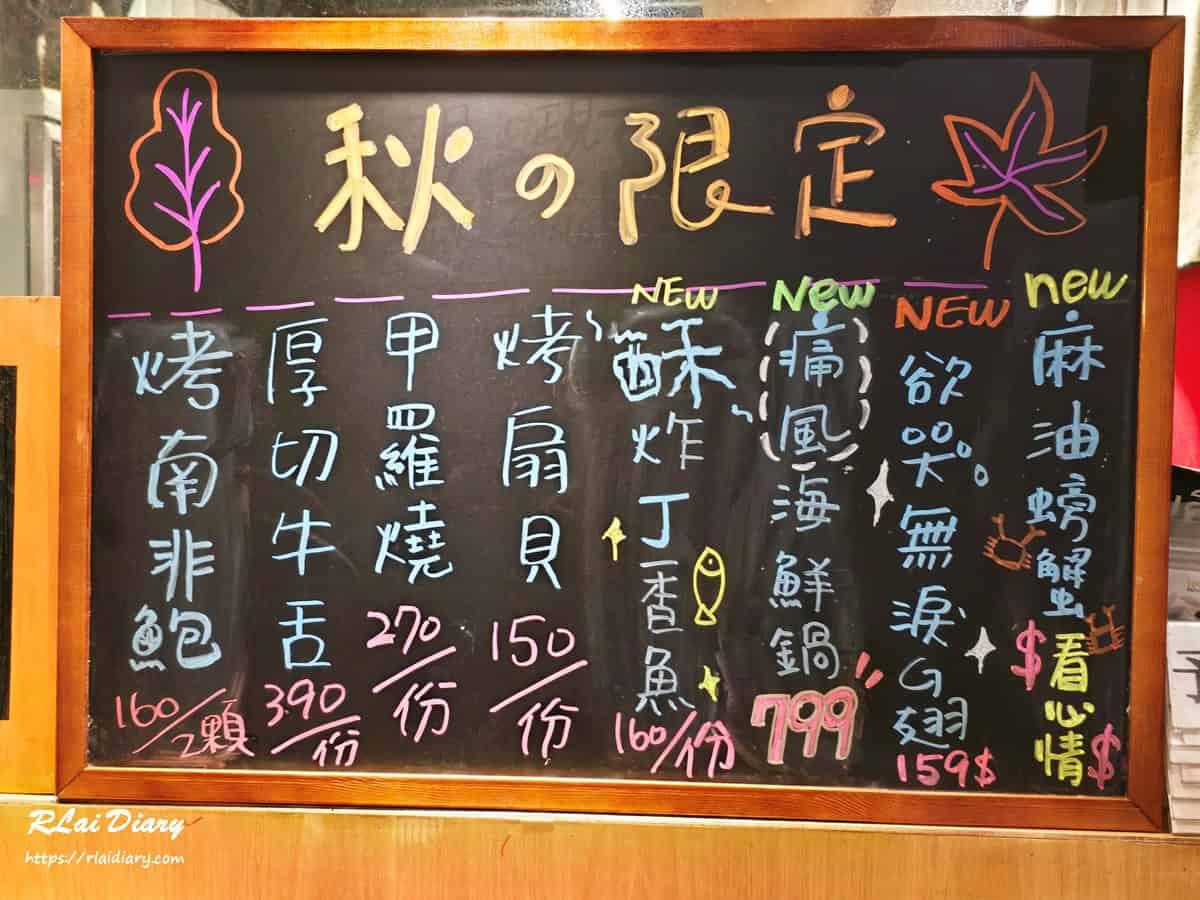 秋の限定
new
麻油螃蟹
$看心情$
NEW
欲哭無淚G翅
159$
New
痛風海鮮鍋
799
NEW
酥炸丁香魚
160/份
烤扇貝
150/份
甲羅燒
270/份
厚切牛舌
390/份
烤南非鮑
160/2顆
RLai Diary
https://rlaidiary.com